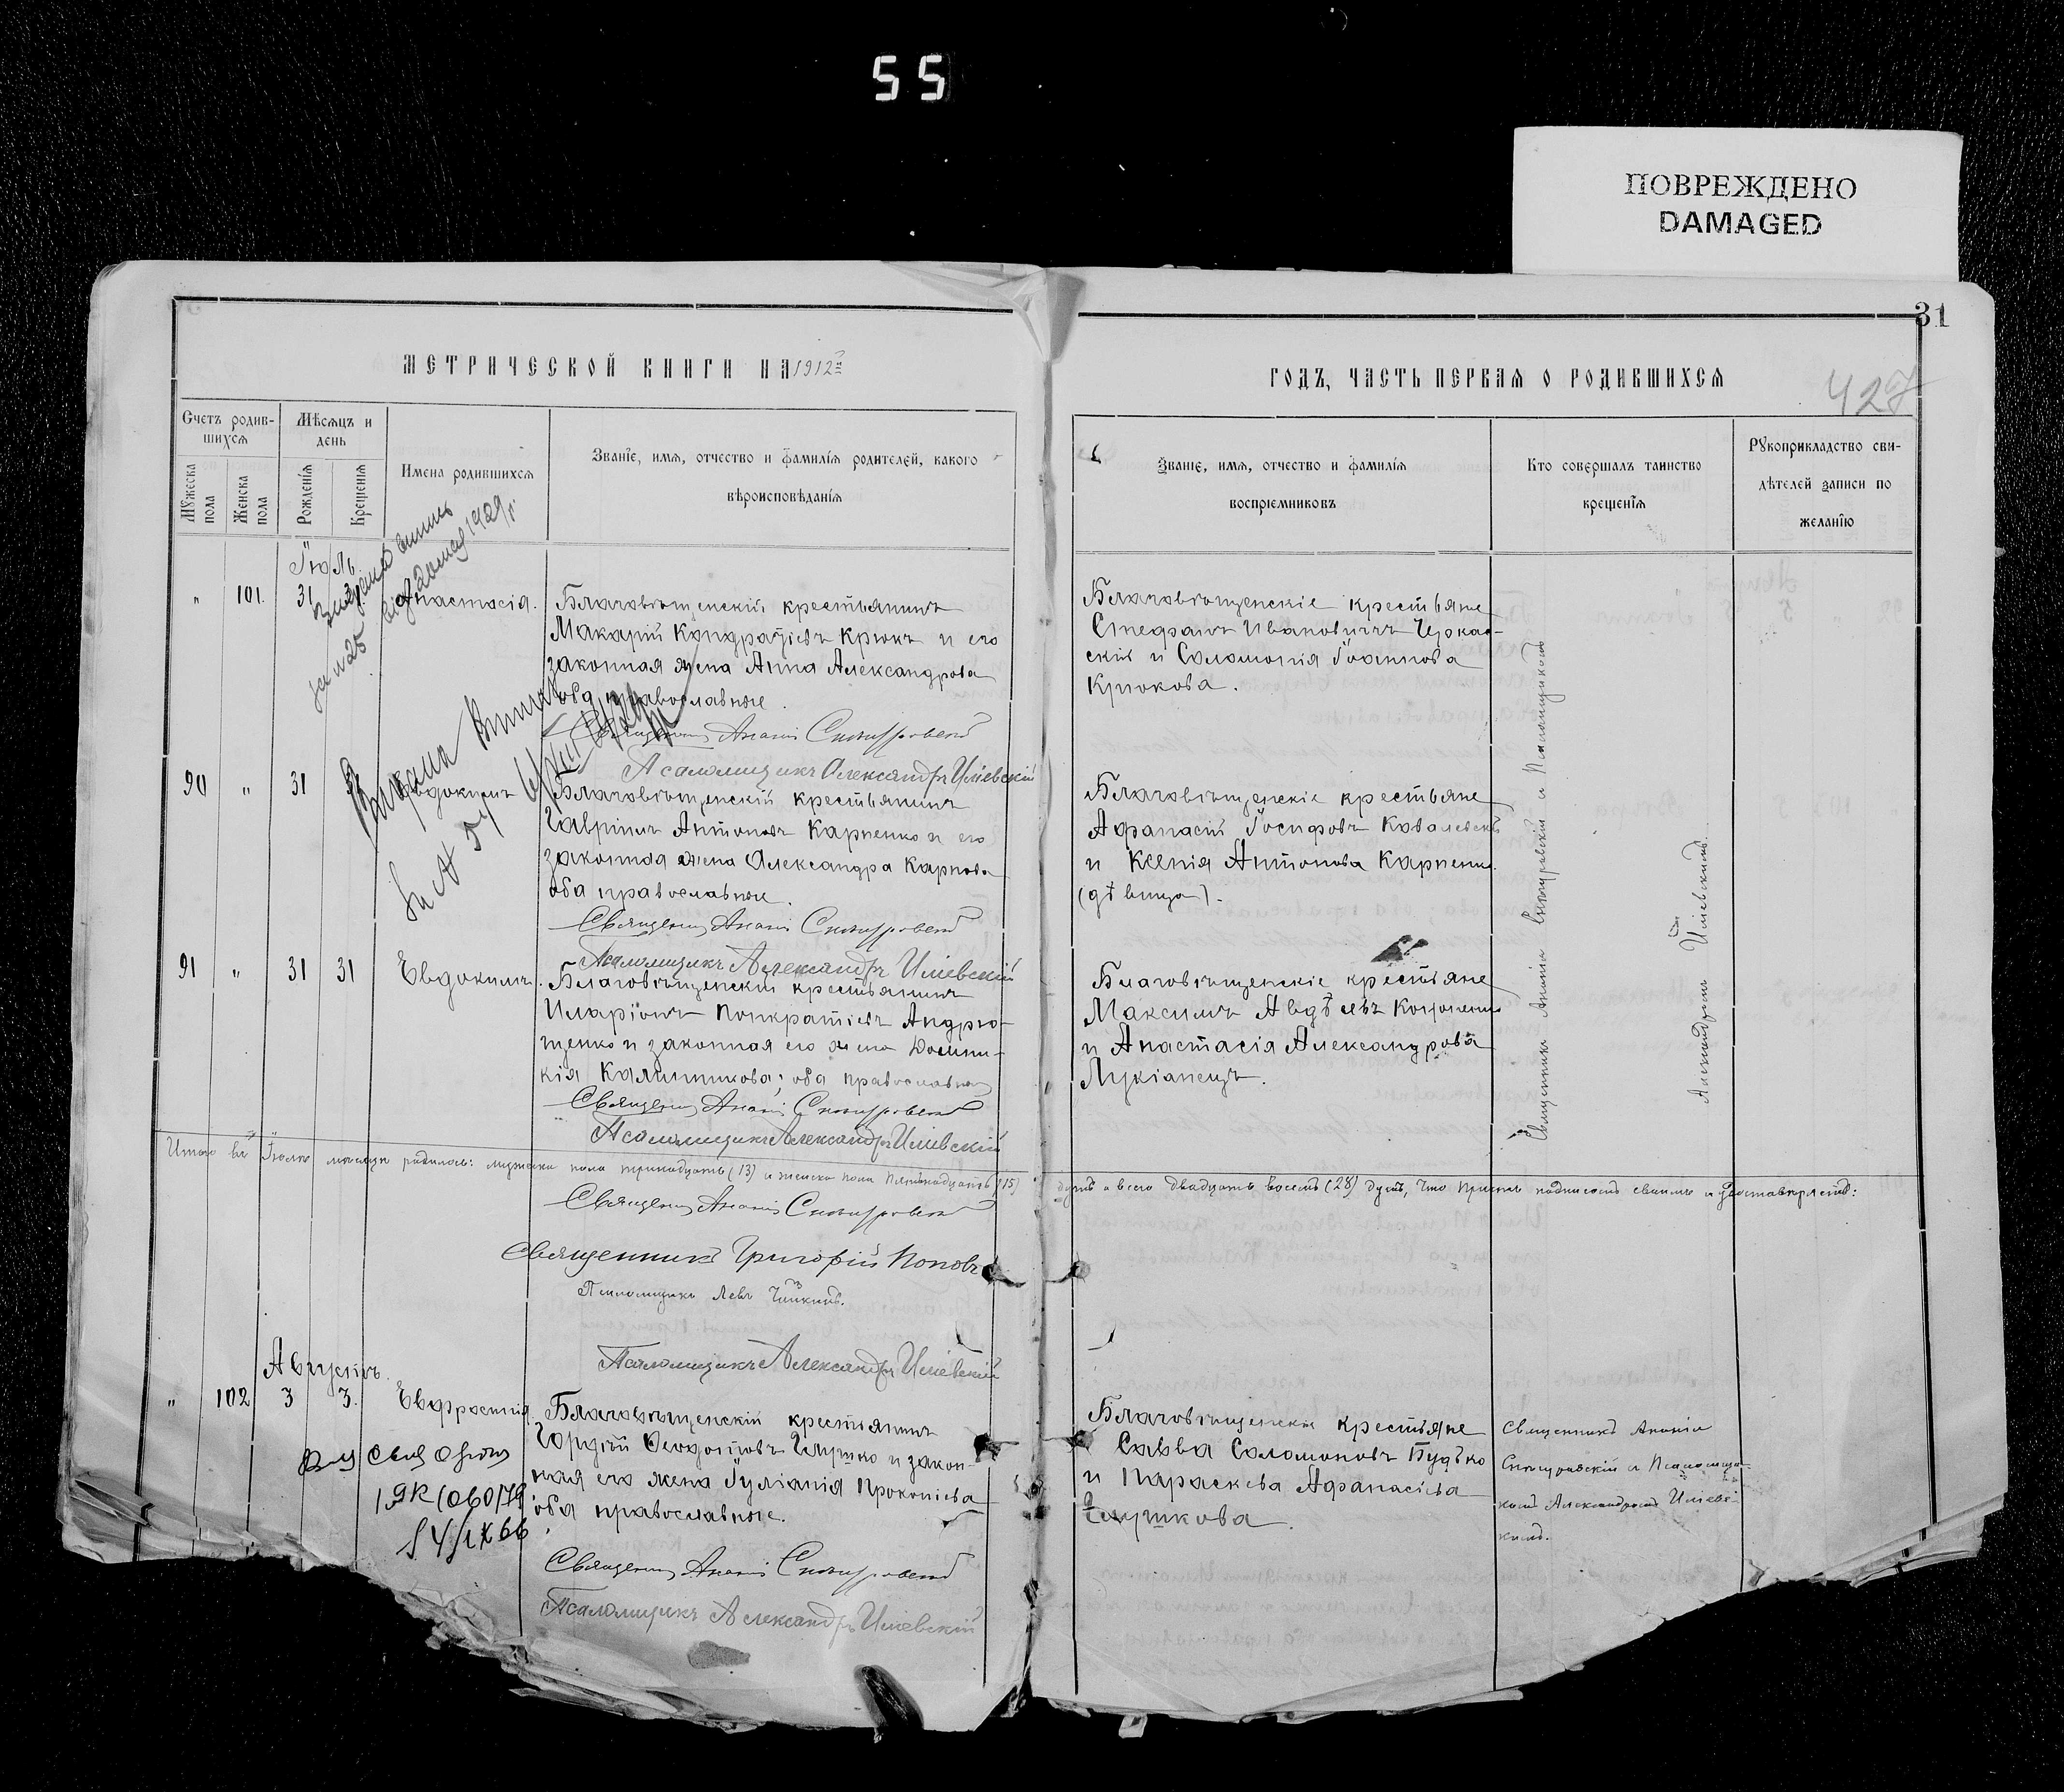 55
ПОВРЕЖДЕНО
DAMAGED
31
МЕТРИЧЕСКОЙ КНИГИ НА 1912й
ГОДЪ, ЧАСТЬ ПЕРВАЯ О РОДИВШИХСЯ
427
Счетъ родив-
шихся
Мѣсяцъ и
день
Мужеска
пола
Женска
пола
Рожденія
Крещенія
Имена родившихся
Званіе, имя, отчество и фамилія родителей, какого
вѣроисповѣданія
Званіе, имя, отчество и фамилія
воспріемниковъ
Кто совершалъ таинство
крещенія
Рукоприкладство сви-
дѣтелей записи по
желанію
Іюль.
" 101. 31 31. Анастасія.
Благовѣщенскій крестьянинъ
Макарій Кондратіевъ Крюкъ и его
законная жена Анна Александрова
оба православные.
Священникъ Ананій
Псаломщикъ Александръ Иліевскій
Благовѣщенскіе крестьяне
Стефанъ Ивановичъ Черкас-
скій и Соломонія Іоаннова
Крюкова.
90 " 31 Евдокимъ
Благовѣщенскій крестьянинъ
Гавріилъ Антоновъ Карпенко и его
законная жена Александра Карпова
оба православные.
Священникъ Ананій
Псаломщикъ Александръ Иліевскій
Благовѣщенскіе крестьяне
Афанасій Іосифовъ Ковалевскъ
и Ксенія Антонова Карпенко
(дѣвица).
91 " 31 31 Евдокимъ.
Благовѣщенскій крестьянинъ
Иларіонъ Панкратіевъ Андрю-
щенко и законная его жена Домни-
кія Калинникова; оба православные
Священникъ Ананій
Псаломщикъ Александръ Иліевскій
Благовѣщенскіе крестьяне
Максимъ Авдѣевъ
и Анастасія Александрова
Лукіанецъ.
Священникъ Ананій и Псаломщикомъ
Александромъ Иліевскимъ
Итого въ Іюлѣ мѣсяцѣ родилось: мужеска пола тринадцать (13) и женска пола пятнадцать (15)
душъ а всего двадцать восемь (28) душъ, что подписомъ своимъ и удостовѣряемъ:
Священникъ Ананій
Священникъ Григорій Поповъ
Псаломщикъ Левъ
Псаломщикъ Александръ Иліевскій
Августъ.
" 102 3 3. Евфросинія.
Благовѣщенскій крестьянинъ
Гордій Феодотовъ Глушко и закон-
ная его жена Іуліанія Прокопіева
оба православные.
Священникъ Ананій
Псаломщикъ Александръ Иліевскій
Благовѣщенскіе крестьяне
Савва Соломоновъ Будько
и Параскева Афанасіева
Глушкова.
Священникъ Ананій
и Псаломщи-
комъ Александромъ Иліевс-
кимъ.